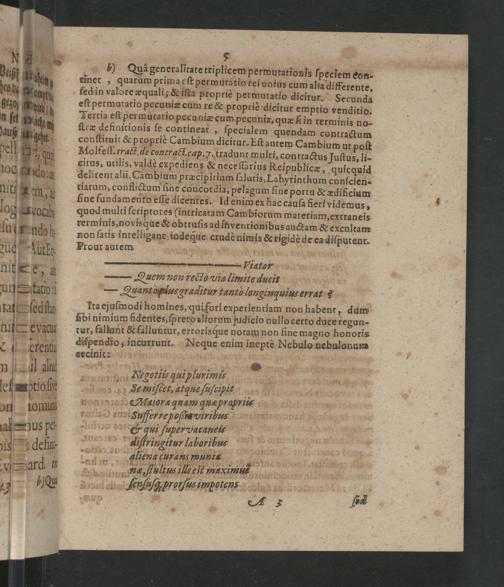 5
b) Quâ generalitate triplicem permutationis speciem con-
tinet, quarum prima est permutatio rei unius cum alia differente,
sed in valore æquali; & ista propriè permutatio dicitur. Secunda
est permutatio pecuniæ cum re & propriè dicitur emptio venditio.
Tertia est permutatio pecuniæ cum pecunia, quæ si in terminis no-
stræ definitionis se contineat, specialem quendam contractum
constituit & propriè Cambium dicitur. Est autem Cambium ut post
Molfess. tract. de contract. cap. 7. tradunt multi, contractus Justus, li-
citus, utilis, valdè expediens & necessarius Reipublicæ, quicquid
delirent alii. Cambium præcipitium salutis. Labyrinthum conscien-
tiarum, conflictum sine concordia, pelagum sine portu & ædificium
sine fundamento esse dicentes. Id enim ex hac causa fieri videmus,
quod multi scriptores (intricatam Cambiorum materiam, extraneis
terminis, novisque & obtrusis adinventionibus auctam & excultam
non satis intelligant indeque etudè nimis & rigidè de ea disputent.
Prout autem
Viator
Quem non recto via limite ducit
Quantò plus graditur tantò longinquius errat
Ita ejusmodi homines, qui fori experientiam non habent, dum
sibi nimium fidentes, spreto aliorum judicio nullo certo duce regun-
tur, fallunt & falluntur, errorisque notam non sine magno honoris
dispendio, incurrunt. Neque enim ineptè Nebulo nebulonum
cecinit:
Negotiis qui plurimis
Se miscet, atque suscipit
Majora quam quæ propriis
Sufferre possit viribus
& qui supervacaneis
distringitur laboribus
aliena curans munia
na, stultus ille est maximus
sensusq́; prorsus impotens
A 3